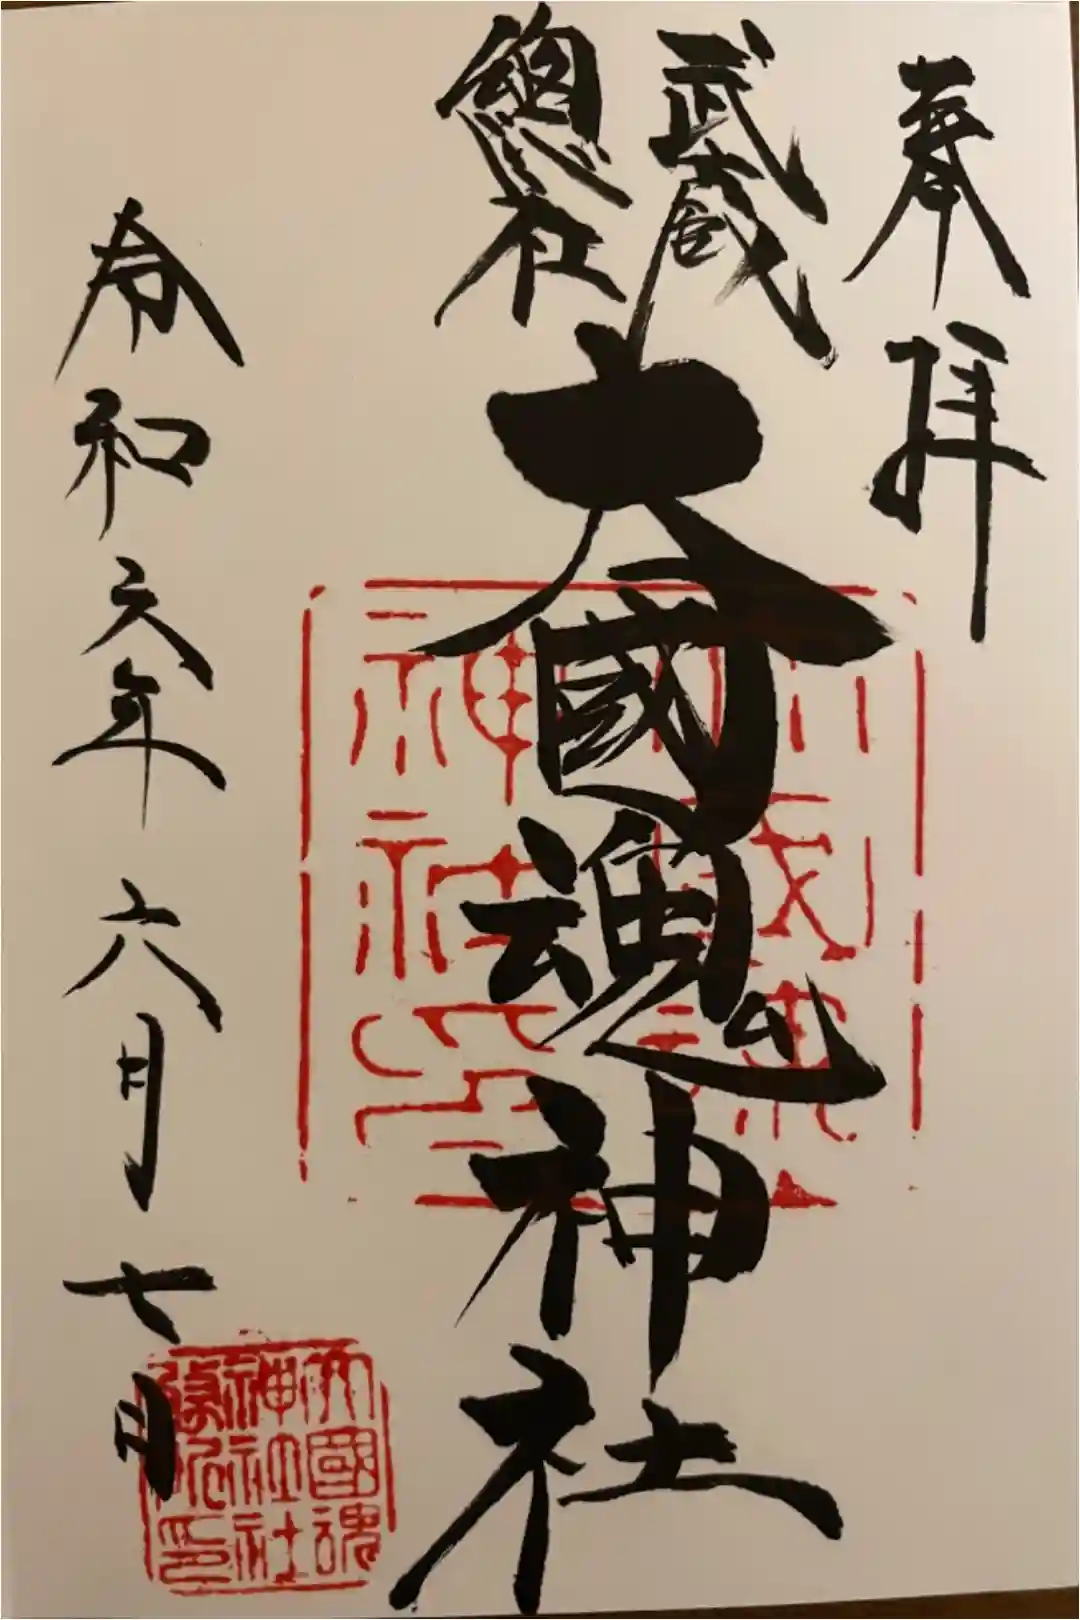 奉拝
武蔵
總社
大國魂神社
令和六年六月七日
大國魂
神社社
務所印